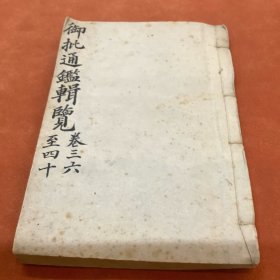 御批通鑑輯覽
卷三六
至四十